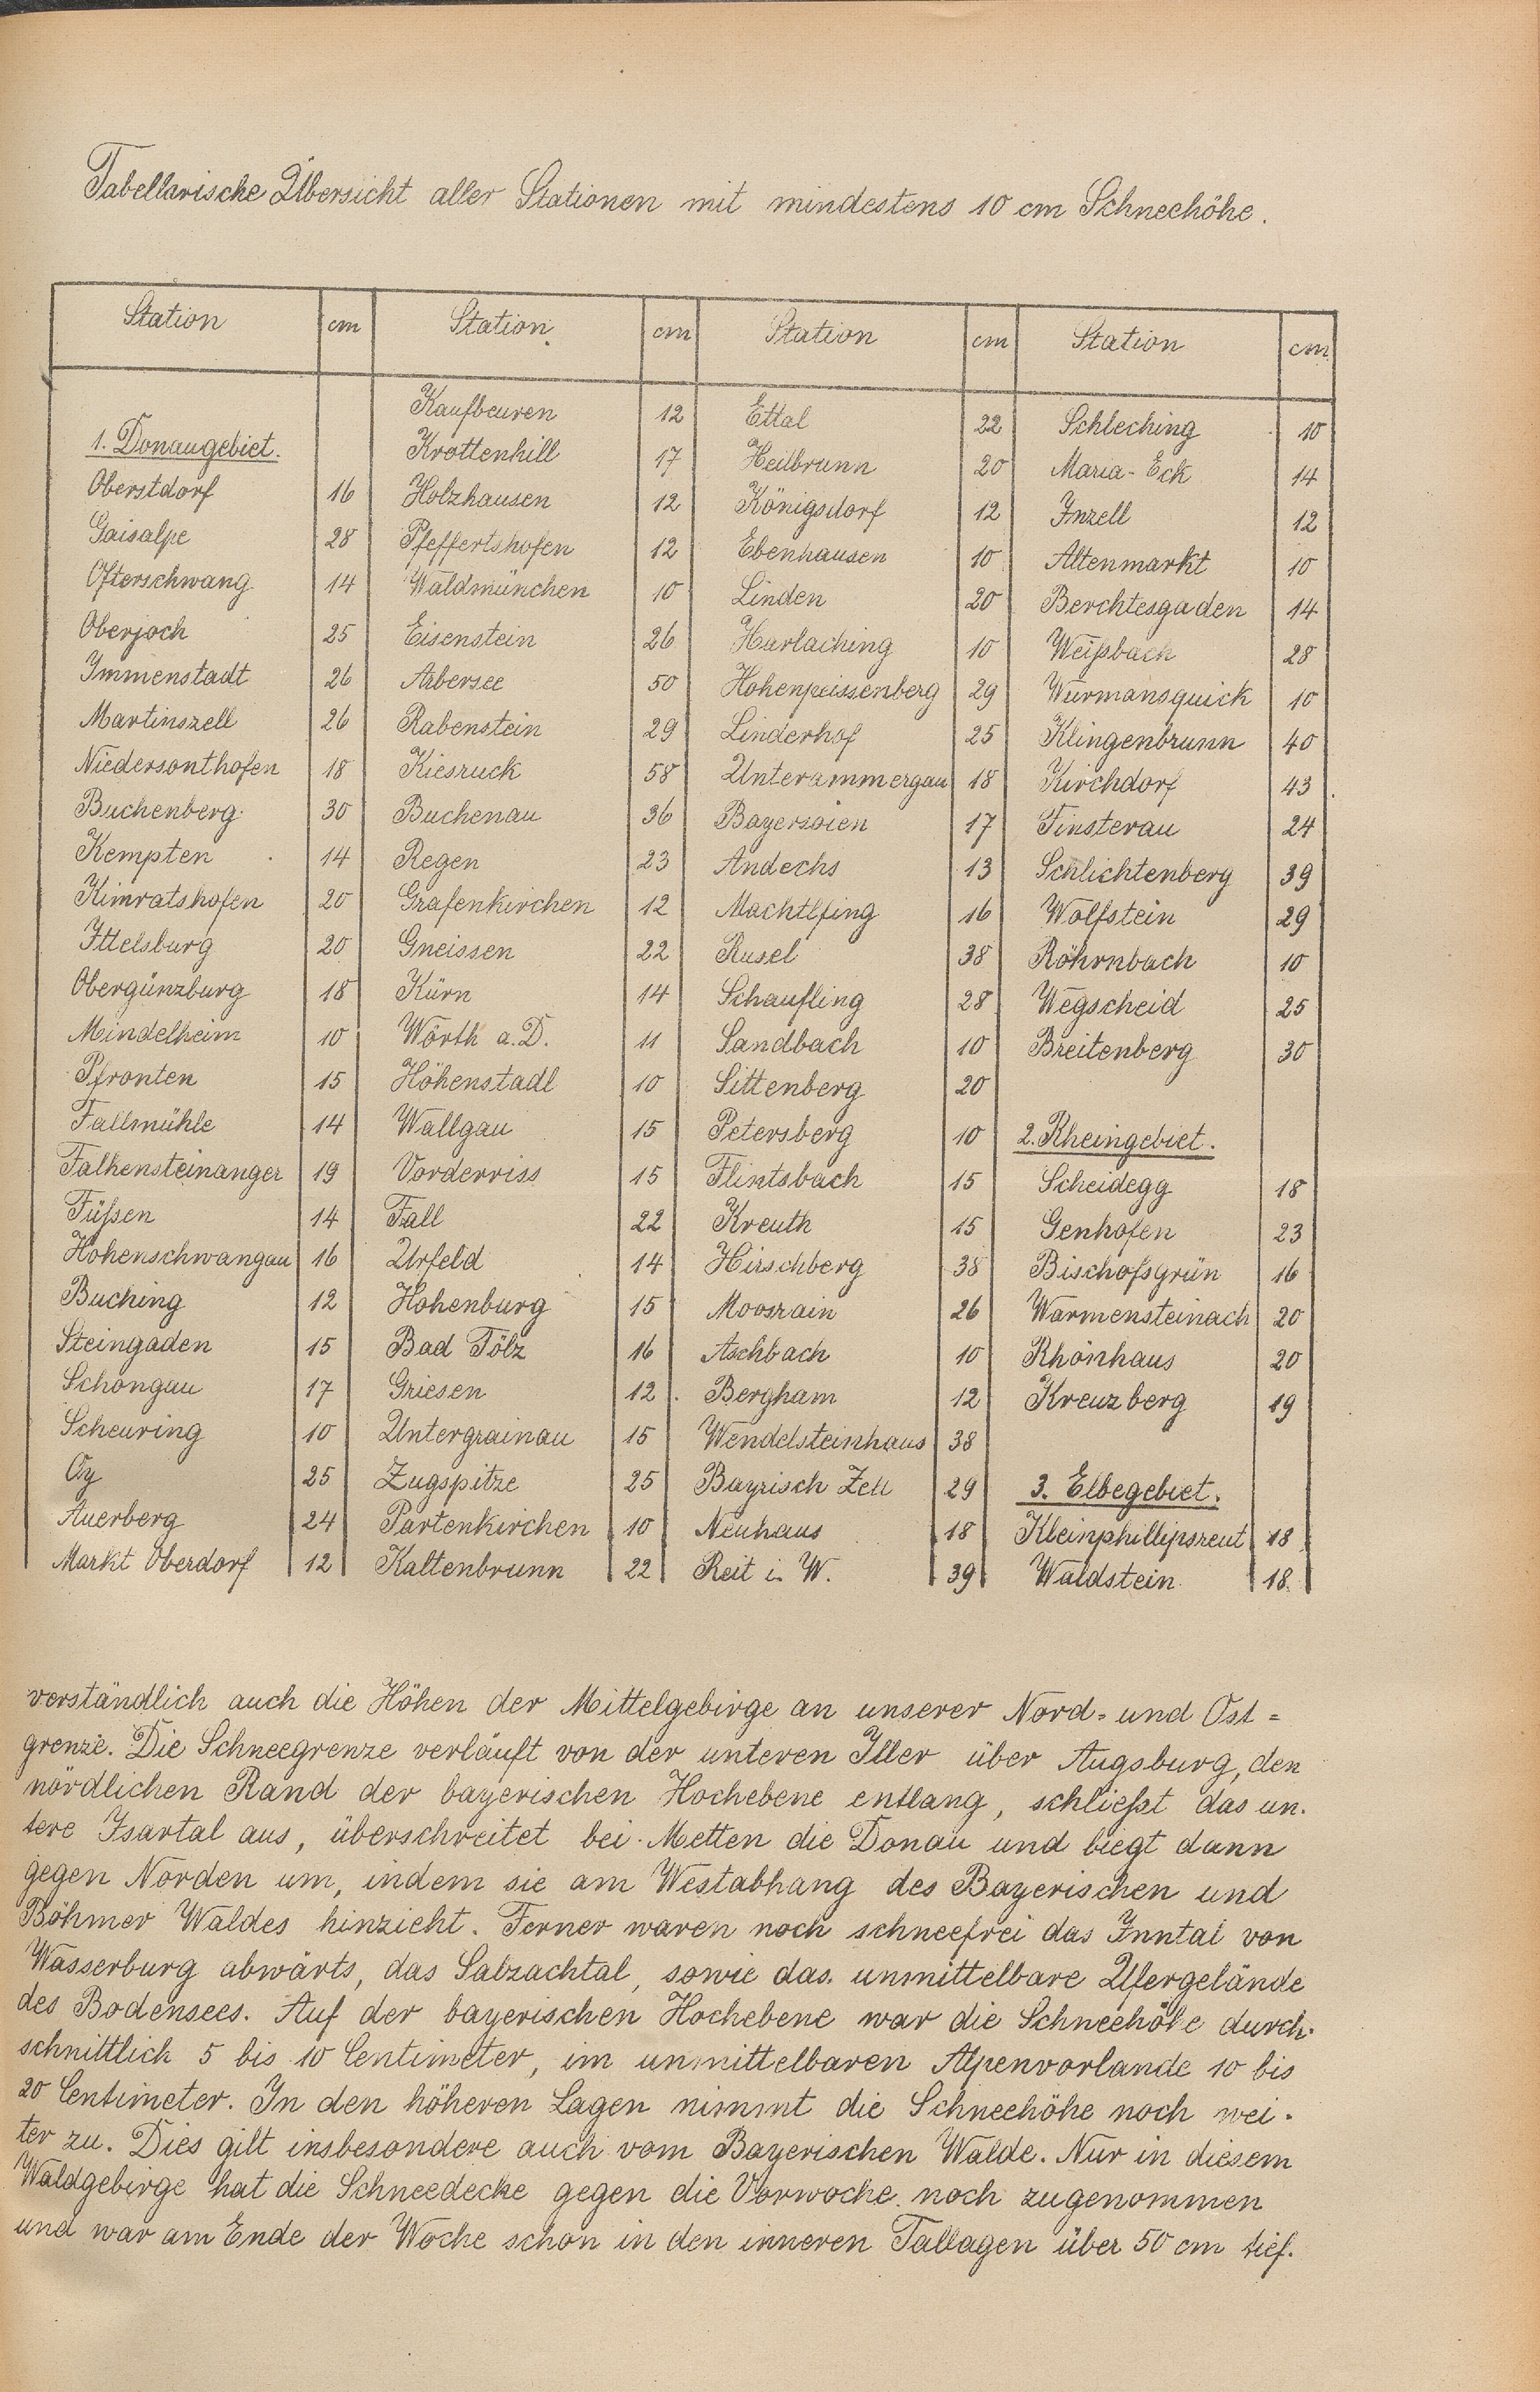 Tabellarische Übersicht aller Stationen mit mindestens 10 cm Schneehöhe.
Station cm Station cm Station cm Station cm
Kaufbeuren 12 Ettal 22 Schleching 10
1. Donaugebiet. Krottenhill 17 Heilbrunn 20 Maria-Eck 14
Oberstdorf 16 Holzhausen 12 Königsdorf 12 Inzell 12
Gaisalpe 28 Pfeffertshofen 12 Ebenhausen 10 Altenmarkt 10
Ofterschwang 14 Waldmünchen 10 Linden 20 Berchtesgaden 14
Oberjoch 25 Eisenstein 26 Harlaching 10 Weißbach 28
Immenstadt 26 Arbersee 50 Hohenpeissenberg 29 Wurmansquick 10
Martinszell 26 Rabenstein 29 Linderhof 25 Klingenbrunn 40
Niedersonthofen 18 Kiesruck 58 Unterammergau 18 Kirchdorf 43
Buchenberg 30 Buchenau 36 Bayersoien 17 Finsterau 24
Kempten 14 Regen 23 Andechs 13 Schlichtenberg 39
Kimratshofen 20 Grafenkirchen 12 Machtlfing 16 Wolfstein 29
Ittelsburg 20 Gneissen 22 Rusel 38 Röhrnbach 10
Obergünzburg 18 Kürn 14 Schaufling 28 Wegscheid 25
Mindelheim 10 Wörth a.D. 11 Sandbach 10 Breitenberg 30
Pfronten 15 Höhenstadl 10 Sittenberg 20
Fallmühle 14 Wallgau 15 Petersberg 10 2. Rheingebiet.
Falkensteinanger 19 Vorderriss 15 Flintsbach 15 Scheidegg 18
Füßen 14 Fall 22 Kreuth 15 Genhofen 23
Hohenschwangau 16 Urfeld 14 Hirschberg 38 Bischofsgrün 16
Buching 12 Hohenburg 15 Moosrain 26 Warmensteinach 20
Steingaden 15 Bad Tölz 16 Aschbach 10 Rhönhaus 20
Schongau 17 Griesen 12 Bergham 12 Kreuzberg 19
Scheuring 10 Untergrainau 15 Wendelsteinhaus 38
Oy 25 Zugspitze 25 Bayrisch Zell 29 3. Elbegebiet.
Auerberg 24 Partenkirchen 10 Neuhaus 18 Kleinphillipsreut 18
Markt Oberdorf 12 Kaltenbrunn 22 Reit i. W. 39 Waldstein 18
verständlich auch die Höhen der Mittelgebirge an unserer Nord= und Ost=
grenze. Die Schneegrenze verläuft von der unteren Iller über Augsburg, den
nördlichen Rand der bayerischen Hochebene entlang, schließt das un-
tere Isartal aus, überschreitet bei Metten die Donau und biegt dann
gegen Norden um, indem sie am Westabhang des Bayerischen und
Böhmer Waldes hinzieht. Ferner waren noch schneefrei das Inntal von
Wasserburg abwärts, das Salzachtal, sowie das unmittelbare Ufergelände
des Bodensees. Auf der bayerischen Hochebene war die Schneehöhe durch-
schnittlich 5 bis 10 Centimeter, im unmittelbaren Alpenvorlande 10 bis
20 Centimeter. In den höheren Lagen nimmt die Schneehöhe noch wei-
ter zu. Dies gilt insbesondere auch vom Bayerischen Walde. Nur in diesem
Waldgebirge hat die Schneedecke gegen die Vorwoche noch zugenommen
und war am Ende der Woche schon in den inneren Tallagen über 50 cm tief.